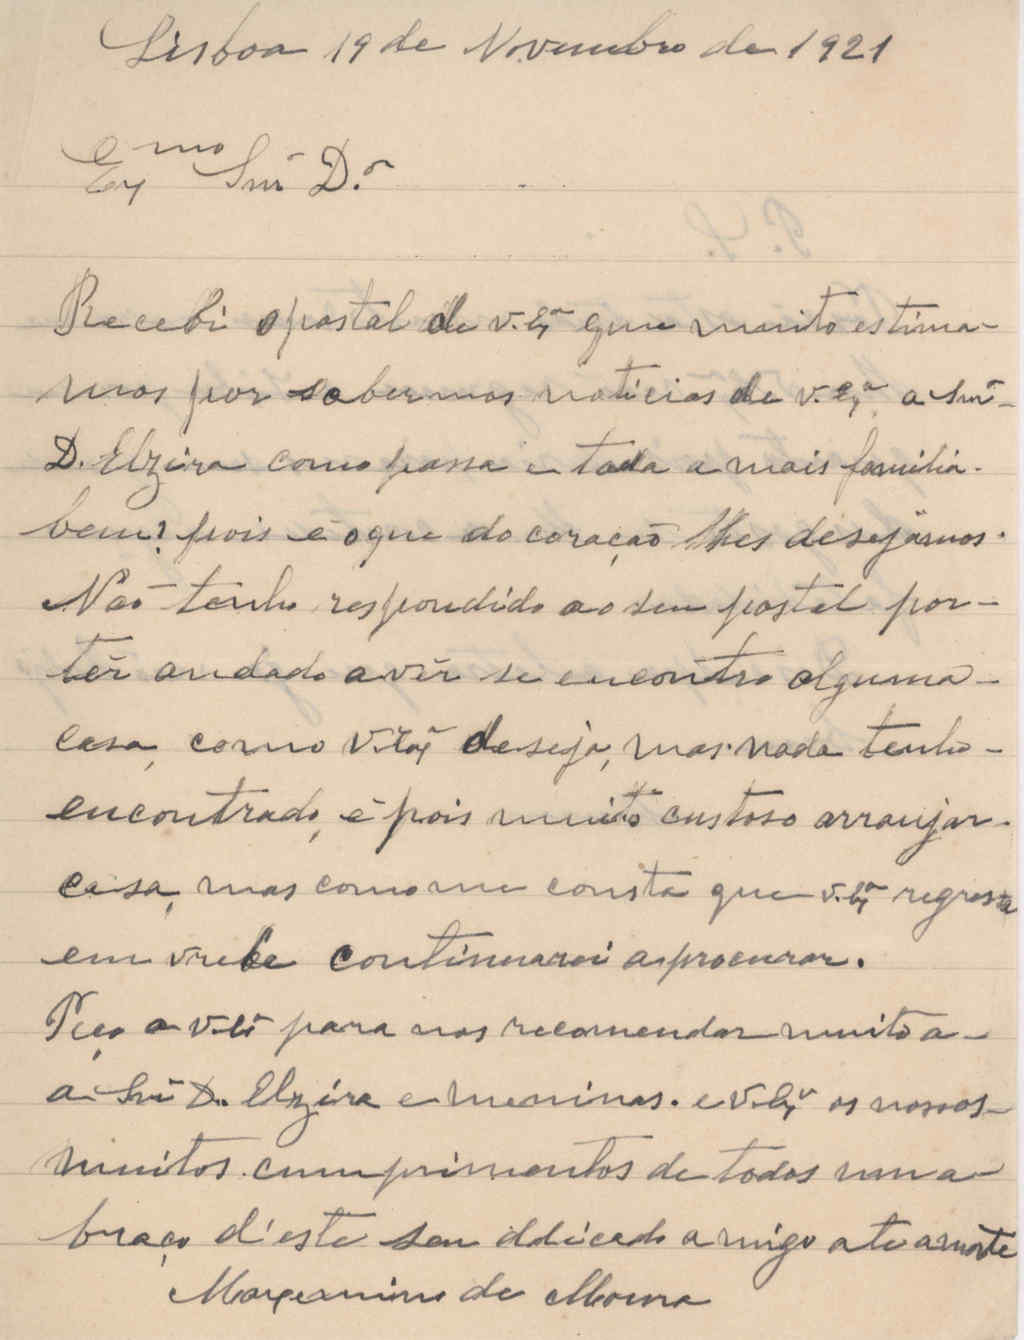 Lisboa 19 de Novembro de 1921
Ex.mo Snr D.or
Recebi o postal de v. Ex.a que muito estima-
mos por sabermos noticias de v. Ex.a a Snr.a
D. Elzira como passa e toda a mais familia
bem? pois é o que do coração lhes desejâmos.
Não tenho respondido ao seu postal por-
têr andado a vêr se encontro alguma-
casa, como v. Ex.a deseja, mas nada tenho-
encontrado, é pois muito custoso arranjar-
casa, mas como me consta que v. Ex.a regressa
em vrebe continuarei a procurar.
Peço a v. Ex.a para nos recomendar muito a-
a Snr.a D. Elzira e meninas. e v. Ex.a os nossos-
muitos cumprimentos de todos um a-
braço d'este seu ddicado amigo ate a morte
de Moura
P. S.